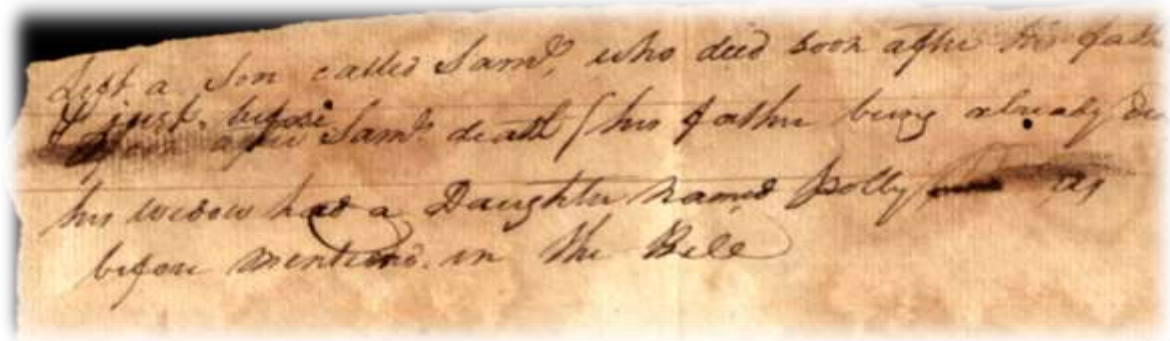 Left a Son called Sam.l, who died soon after his fath
& just. before
after Sam.ls death (his father being already De
his widow had a Daughter named Polly as
before mentiond. in the Bill